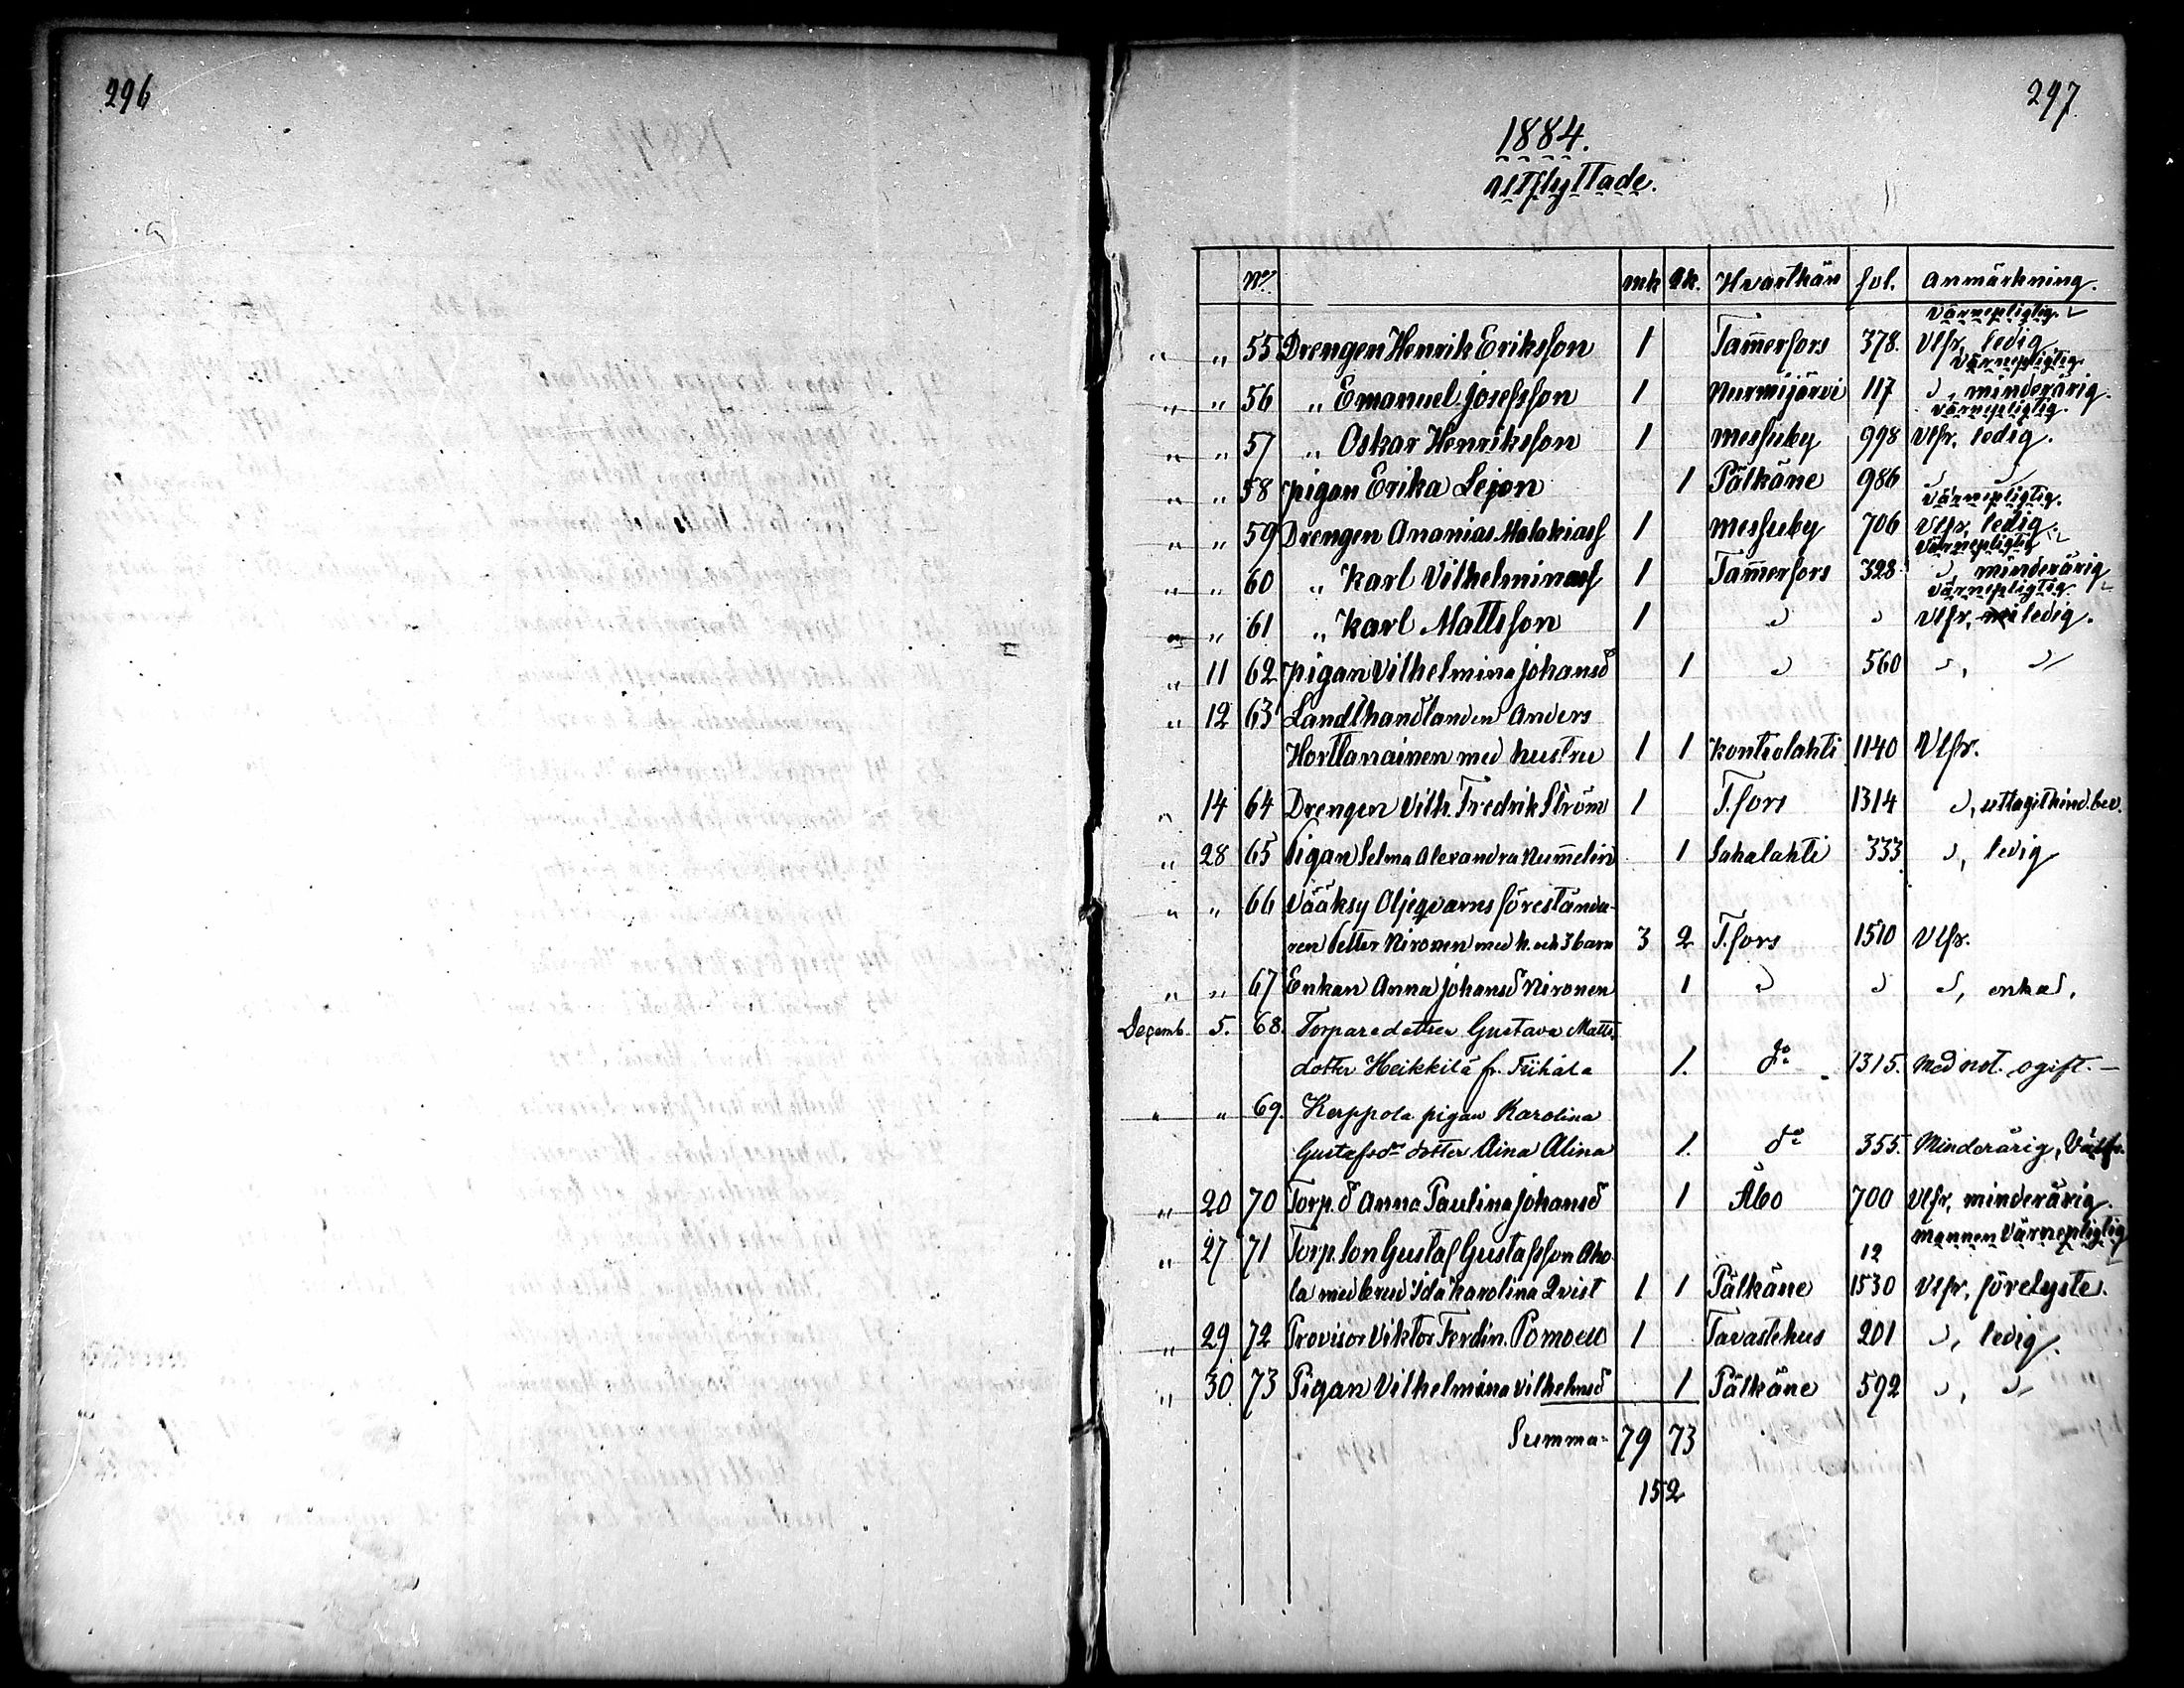 296
297
1884.
Utflyttade.
No. mk qk. Hvarthän fol. Anmärkning.
Värnepligtig.
" " 55 Drengen Henrik Eriksson 1 Tam̄erfors 378. Vlfr, ledig
Värnepligtig.
" " 56 " Emanuel Josefsson 1 Nurmijärvi 117 ", minderårig.
värnepligtig.
" " 57 " Oskar Henriksson 1 Messuby 998 Vlfr, ledig.
" " 58 Pigan Erika Lejon 1 Pälkäne 986 " "
Värnepligtig.
" " 59 Drengen Ananias Malakiass 1 Messuby 706 Vlfr, ledig.
Värnepligtig
" " 60 " Karl Vilhelminass 1 Tam̄erfors 328 ", minderårig
Värnepligtig.
" " 61 " Karl Mattsson 1 " " Vlfr, ledig.
" 11 62 Pigan Vilhelmina Johansd 1 " 560 ", "
" 12 63 Landthandlanden Anders
Horttanainen med hustru 1 1 Kontiolahti 1140 Vlfr.
" 14 64 Drengen Vilh. Fredrik Ström 1 T.fors 1314 ", uttagit hind.bev.
" 28 65 Pigan Selma Alexandra Num̄elin 1 Sahalahti 333 ", ledig
" " 66 Vääksy Oljeqvarns förestånda-
ren Petter Nironen med h. och 3 barn 3 2 T.fors 1510 Vlfr.
" " 67 Enkan Anna Johansd Nironen 1 " " ", enka,
Decemb. 5. 68. Torparedottren Gustava Matts-
dotter Heikkilä fr. Tiihala 1. do 1315. Med not. ogift. —
" " 69. Kerppola pigan Karolina
Gustafsdrs dotter Aina Alina 1. do 355. Minderårig, Välfr.
" 20 70 Torp. d Anna Paulina Johansd 1 Åbo 700 Vlfr, minderårig.
mannen Värnepligtig
" 27 71 Torp. son Gustaf Gustafsson Aho- 12
la med brud Ida Karolina Qvist 1 1 Pälkäne 1530 Vlfr, förelyste.
" 29 72 Provisor Viktor Ferdin. Pomoell 1 Tavastehus 201 ", ledig.
" 30. 73 Pigan Vilhelmina Vilhelmsd 1 Pälkäne 592 ", "
Summa 79 73
152